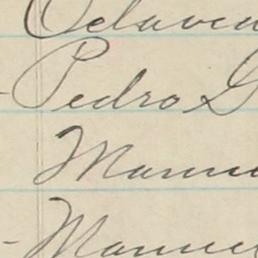 Octaven
- Pedro G
Manue
- Manuel